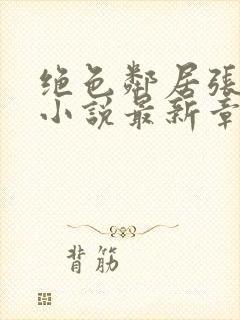 绝色鄰居張
小說最新章
背筋